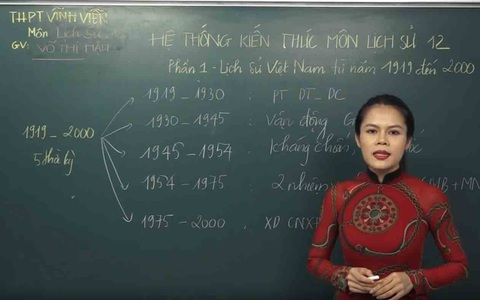 THPT VĨNH VIỄN
Môn Lịch Sử
GV: VÕ THỊ MÀU
HỆ THỐNG KIẾN THỨC MÔN LỊCH SỬ 12
Phần 1 - Lịch sử Việt Nam từ năm 1919 đến 2000
1919 - 2000
5 thời kỳ
1919 - 1930 : PT DT - DC
1930 - 1945 : Vận động
1945 - 1954 : kháng chiến
1954 - 1975 : 2 nhiệm
1975 - 2000 : XD CNXH